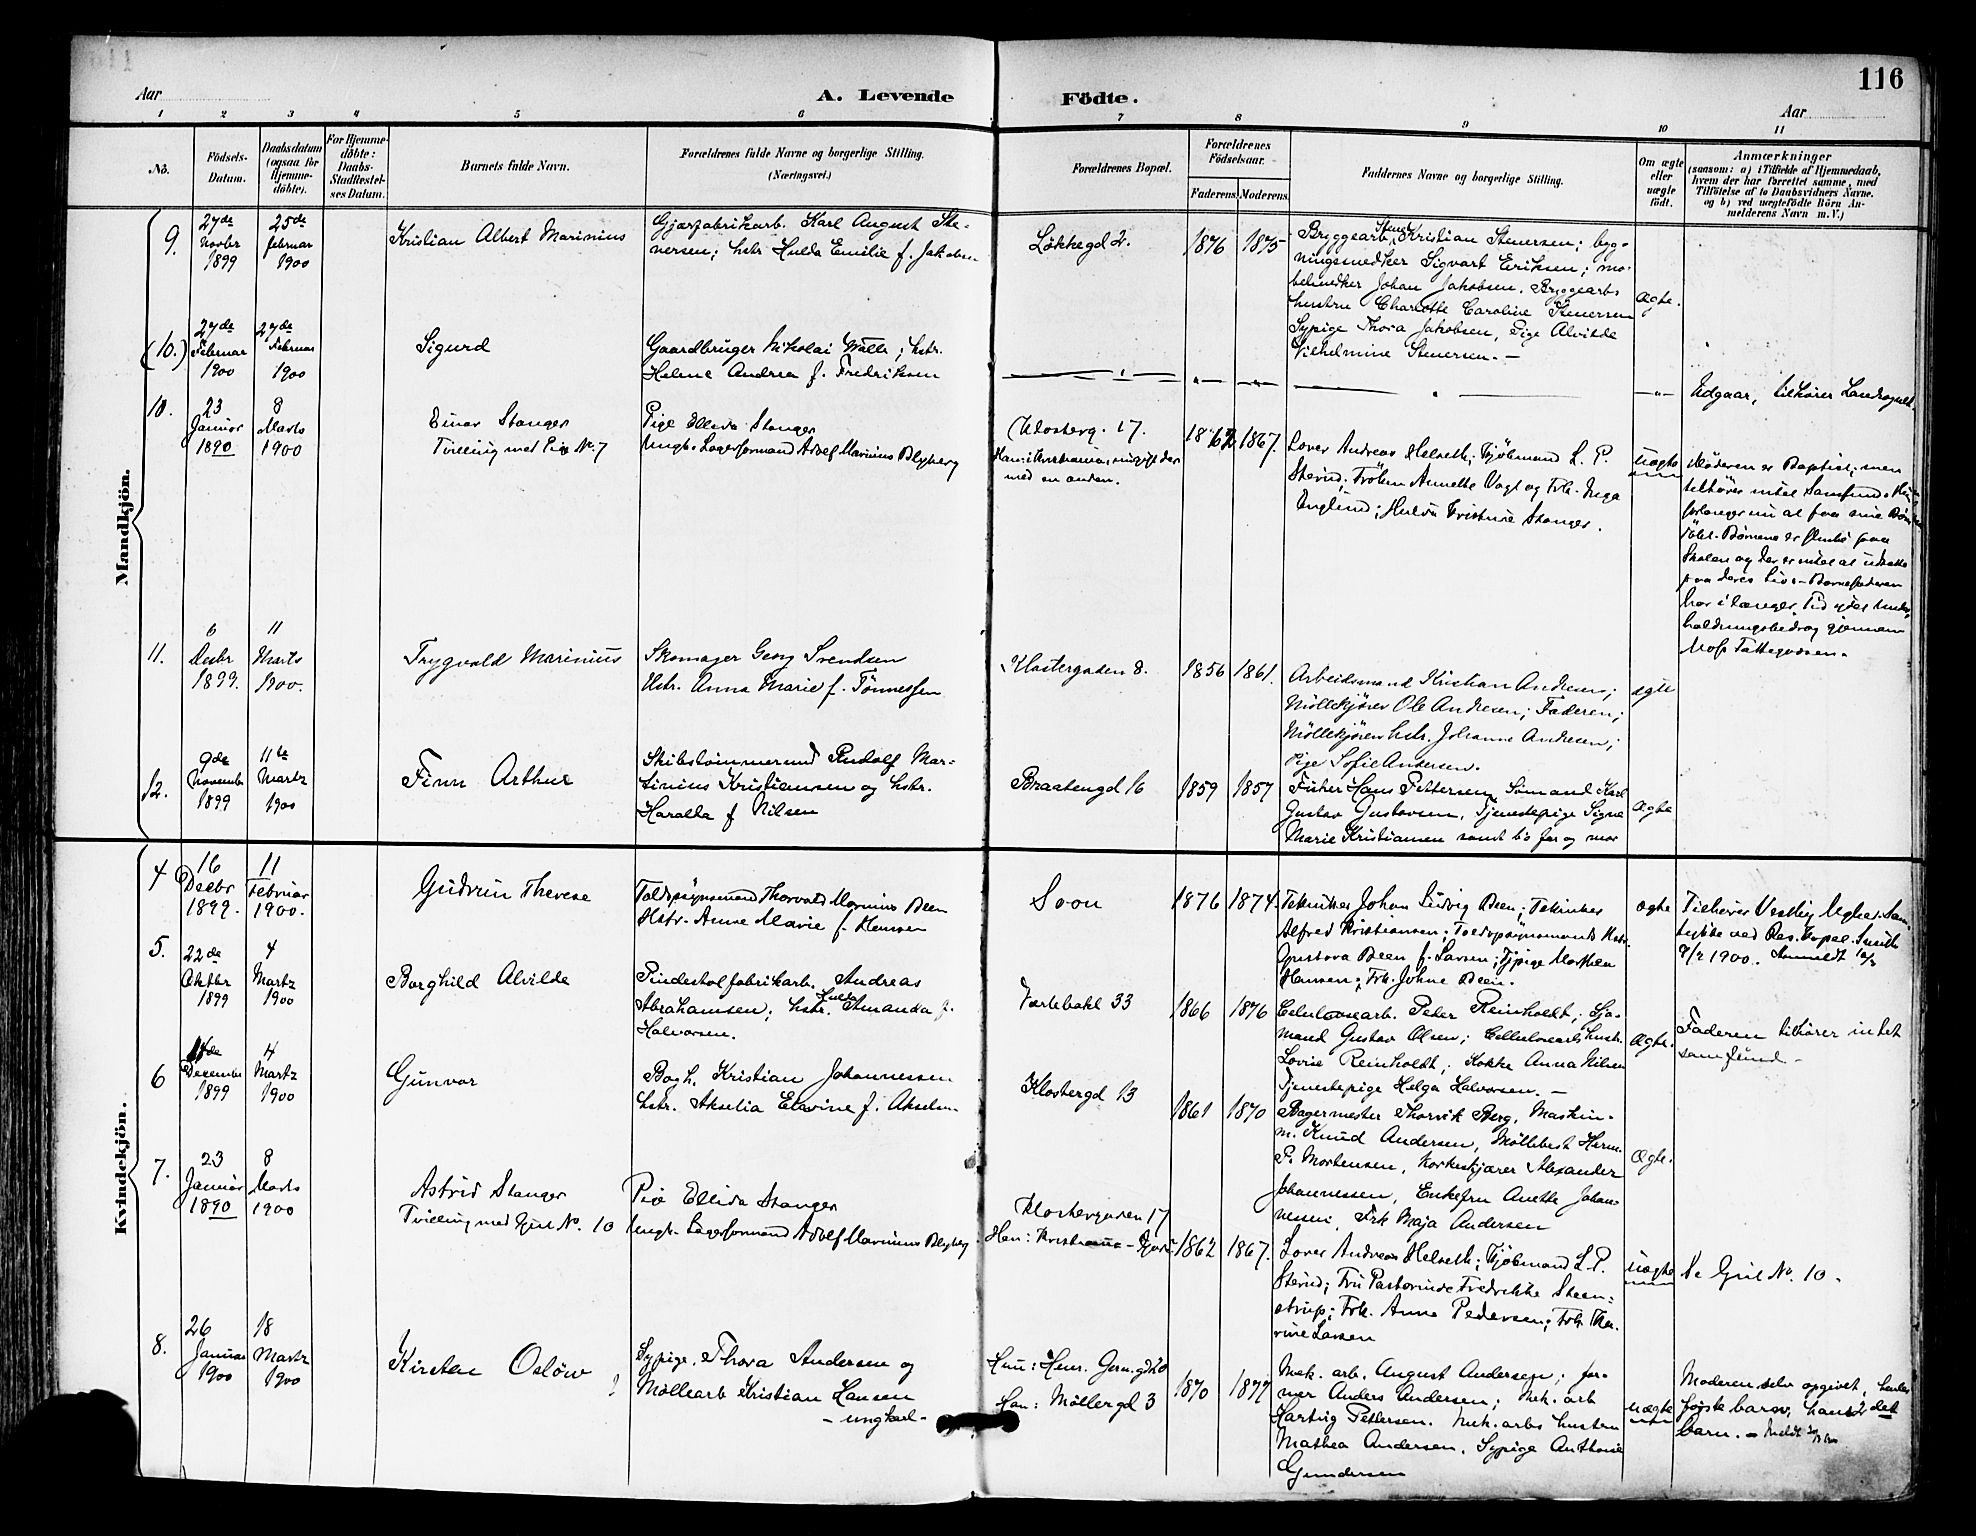 116
Aar
A. Levende Födte.
Aar
1 2 3 4 5 6 7 8 9 10 11
No.
Födsels-Datum.
Daabsdatum (ogsaa for Hjemmedöbte).
For Hjemmedöbte: Daabs-Stadfestelses Datum.
Barnets fulde Navn.
Forældrenes fulde Navne og borgerlige Stilling.
(Næringsvei.)
Forældrenes Bopæl.
Forældrenes Födselsaar.
Faderens. Moderens.
Faddernes Navne og borgerlige Stilling.
Om ægte eller uægte födt.
Anmærkninger
(saasom: a) i Tilfælde af Hjemmedaab,
hvem der har forrettet samme, med
Tilföielse af to Daabsvidners Navne.
og b) ved uægtefödte Börn Anmelderens Navn m. V.)
Mandkjön.
9.
27de Novbr 1899
25de februar 1900
Kristian Albert Marinius
Gjærfabrikarb. Karl August Ste-
nersen; hstr. Hulda Emilie f. Jakobsen
Løkkegd 2.
1876 1875
Byggearb. Kristian Stenersen; byg-
ningssnedker Sigvart Eriksen; mø-
belsnedker Johan Jakobsen. Byggearb.
hustru Charlotte Caroline Stenersen
Sypige Thora Jakobsen, Pige Alvilde
Vilhelmine Stenersen. —
Ægte.
(10.)
27de Februar 1900
27de Februar 1900
Sigurd
Gaardbruger Nikolai Walle; hstr.
Helene Andrea f. Fredriksen
Udgaar, tilhører Landsognet.
10.
23 Januar 1890
8 Marts 1900
Einar Stanger
Tvilling med Pige No. 7
Pige Ellida Stanger
Ungk. Lagerformand Adolf Marinius Blyberg
Klosterg. 17.
Han: i Kristiania, nugift der
med en anden.
1862 1867.
Lover Andreas Helseth; Kjøbmand L. P.
Sterud; Frøken Annette Vogt og Frk. Inga
Englund; Hulda Kristine Stanger.
uægte
Moderen er Baptist; men
tilhører intet Samfund.
forlanger nu at faa sine Børn
døbt. Børnene er flinke paa
Skolen og der er intet at udsætte
paa deres Liv. – Barnefaderen
har i længer Tid ydet Under-
holdningsbidrag gjennem
Moss Fattigvæsen.
11.
6 Decbr 1899.
11 Marts 1900.
Trygvald Marinius
Skomager Georg Svendsen
Hstr. Anna Marie f. Tønnessen
Klostergaden 8.
1856 1861.
Arbeidsmand Kristian Andresen;
Møllekjører Ole Andresen; Faderen;
Møllekjører hstr. Johanne Andresen;
Pige Sofie Andersen.
ægte
12.
9de November 1899
11te Martz 1900
Finn Arthur
Skibstømmermd Rudolf Mar-
tinius Kristiansen og hstr.
Haralda f Nilsen
Braatengd 16
1859 1857
Fisker Hans Pettersen, Sømand Karl
Gustav Gustavsen, Tjenestepige Signe
Marie Kristiansen samt b's far og mor
Ægte
Kvindekjön.
4
16 Decbr 1899.
11 Februar 1900.
Gudrun Therese
Toldopsynsmand Thorvald Marinius Deen
Hstr. Anne Marie f. Hansen
Soon
1876 1874.
Tekniker Johan Ludvig Deen; Tekniker
Alfred Kristiansen; Toldopsynsmands Hstr.
Gustava Deen f. Larsen; Pige Marthea
Hansen; Frk. Johne Deen.
ægte
Tilhører Vestby Meghed. Sam-
tykke ved Res. Kapel. Smith
9/2 1900.
5.
22de Oktbr 1899
4 Martz 1900
Borghild Alvilde
Pindestolfabrikarb. Andreas
Abrahamsen; hstr. Hulda Amanda f.
Halvorsen.
Værlebakl 33
1866 1876
Celulosearb. Peder Reinholdt; Sjø-
mand Gustav Olsen; Cellulosearbs hustr.
Lovise Reinholdt; Kokke Anna Nilsen
Tjenestepige Helga Halvorsen. —
Ægte.
Faderen tilhører intet
samfund —
6
December 1899
4 Martz 1900
Gunvor
Bogh. Kristian Johannessen
hstr. Akselia Elavine f. Akselsen
Klostergd 13
1861 1870
Bagermester Thorvik Berg, Maskin-
m. Knud Andersen, Møllebest Herm.
P. Mortensen, Korkeskjærer Alexander
Johannessen, Enkefru Anette Johan-
nessen, Frk Maja Andersen
Ægte.
7.
23 Januar 1890
8 Marts 1900
Astrid Stanger
Tvilling med Gut No. 10
Pige Ellida Stanger
Ungk. Lagerformand Adolf Marinius Blyberg
Klostergaden 17
Han: Kristiania –
1862 1867.
Lover Andreas Helseth; Kjøbmand L. P.
Sterud; Fru Pastorinde Fredrikke Steen-
strup; Frk. Anna Pedersen; Frk Tho-
rine Larsen
uægte
Se Gut No. 10.
8.
26 Januar 1900
18 Martz 1900
Kirsten Osløw
Sypige. Thora Andersen og
Møllearb Kristian Hansen
– ungkarl –
Hun: Henr. Gern. gd 20
Han: Møllergd 3
1870 1877
Mek. arb. August Andersen; for-
mer Anders Andersen; Mek. arb
Hartvig Pettersen. Mek. arbs hustru
Mathea Andersen, Sypige Anthonie
Gundersen
uægte
Moderen selv opgivet, hendes
første barn, hans 2det
barn. –